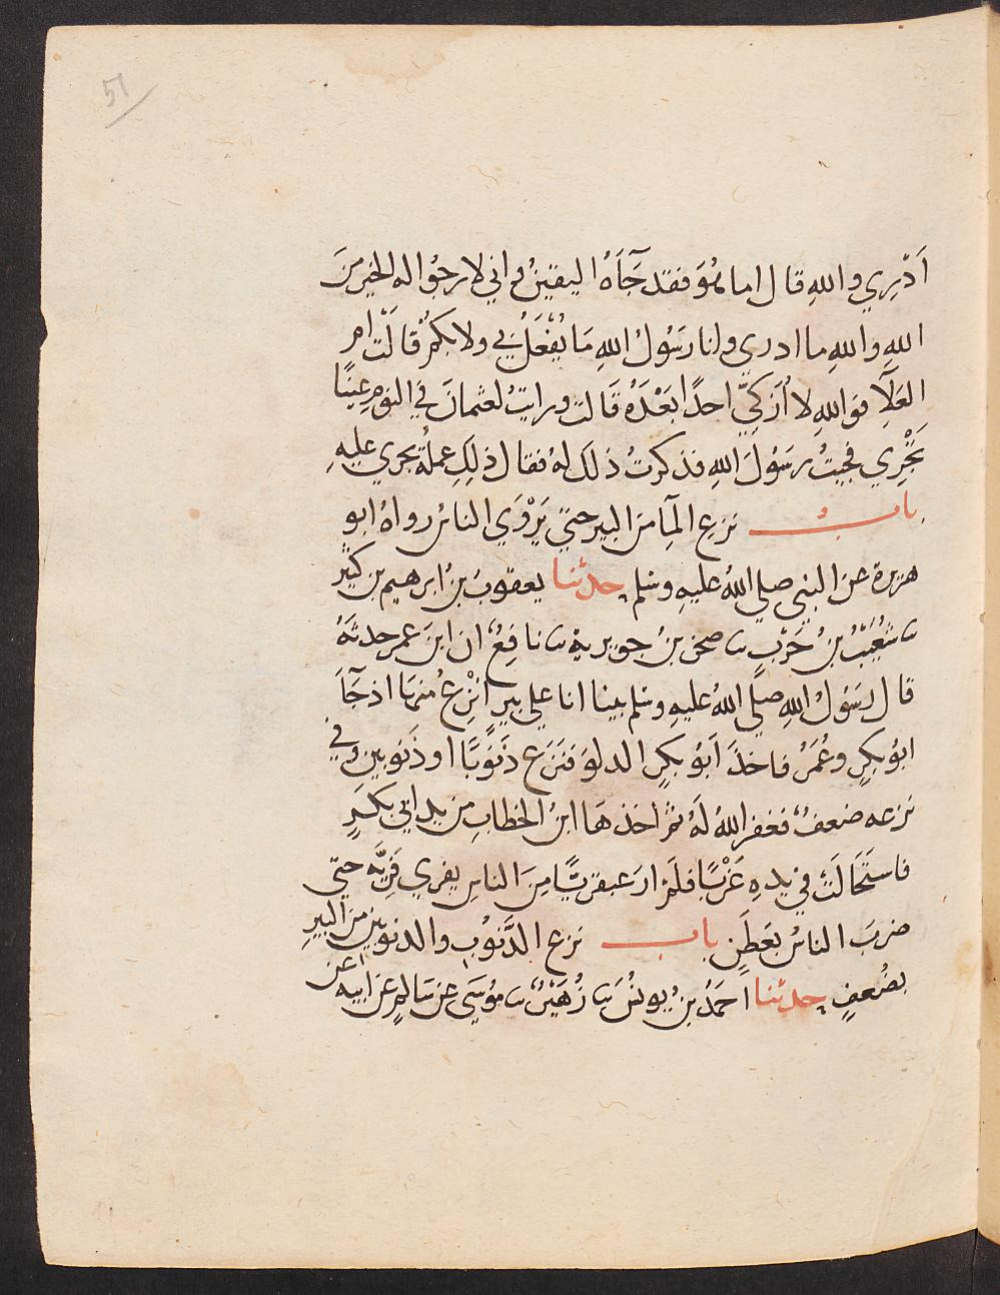 51
اَدْرِي والله قال اما هُوَ فقد جَآءَهُ اليقينُ واني لارجُوا له الخير منَ
اللهِ واللهِ ما ادري وانا رَسُولُ اللهِ مَا يُفْعَلُ بي ولا بكمُ قالَتْ ام
العَلَآءِ فوَاللهِ لا اُزَكِّيّ احدًا بَعْدَهُ قَالت ورايتُ لعثمانَ في النومِ عينًا
تَجْرِي فجيتُ رسَوُلَ اللهِ فذكرتُ ذلك لهُ فقال ذلِكِ عملُهُ يجري عليهِ
باب نزعِ المآءِ منَ البيرِ حتي يَرْوَي الناسُ رواهُ ابو
هريرة عن النبي صلي اللهُ عليهِ وسَلم حدثنا يعقوبُ بنُ ابرهيم بن كثير
ثنا شُعَيْبُ بنُ حَرْبٍ ثنا صخرُ بنُ جويرية ثنا نافِعٌ ان ابنَ عمر حدثهُ
قال رسَوُلُ اللهِ صلَّي اللهُ عليهِ وسَلم بينا انا علي بيرٍ اَنْزِعُ منهَا اذ جَآءَ
ابوُ بكرٍ وعُمَرُ فاخذَ اَبوُ بكرٍ الدلوَ فنَزَع ذَنوُبًا او ذَنوُبين وفي
نزعه ضعفٌ فغفر اللهُ لَهُ ثم اخذهَا ابنُ الخطابِ من يدِ ابي بكرٍ
فاستَحَالَتْ في يدهِ غَرْبًا فلَمْ ارَ عبقريًّا مِنَ الناسِ يفري فَرِيَّه حتي
ضربَ الناسُ بعَطَنٍ باب نزعِ الذَّنوُبِ والذنوبينِ منَ البيرِ
بضُعفٍ حدثنا احمَدُ بنُ يونُسَ ثنا زُهَيْرٌ ثنا موُسَي عن سَالمٍ عن ابيه عن